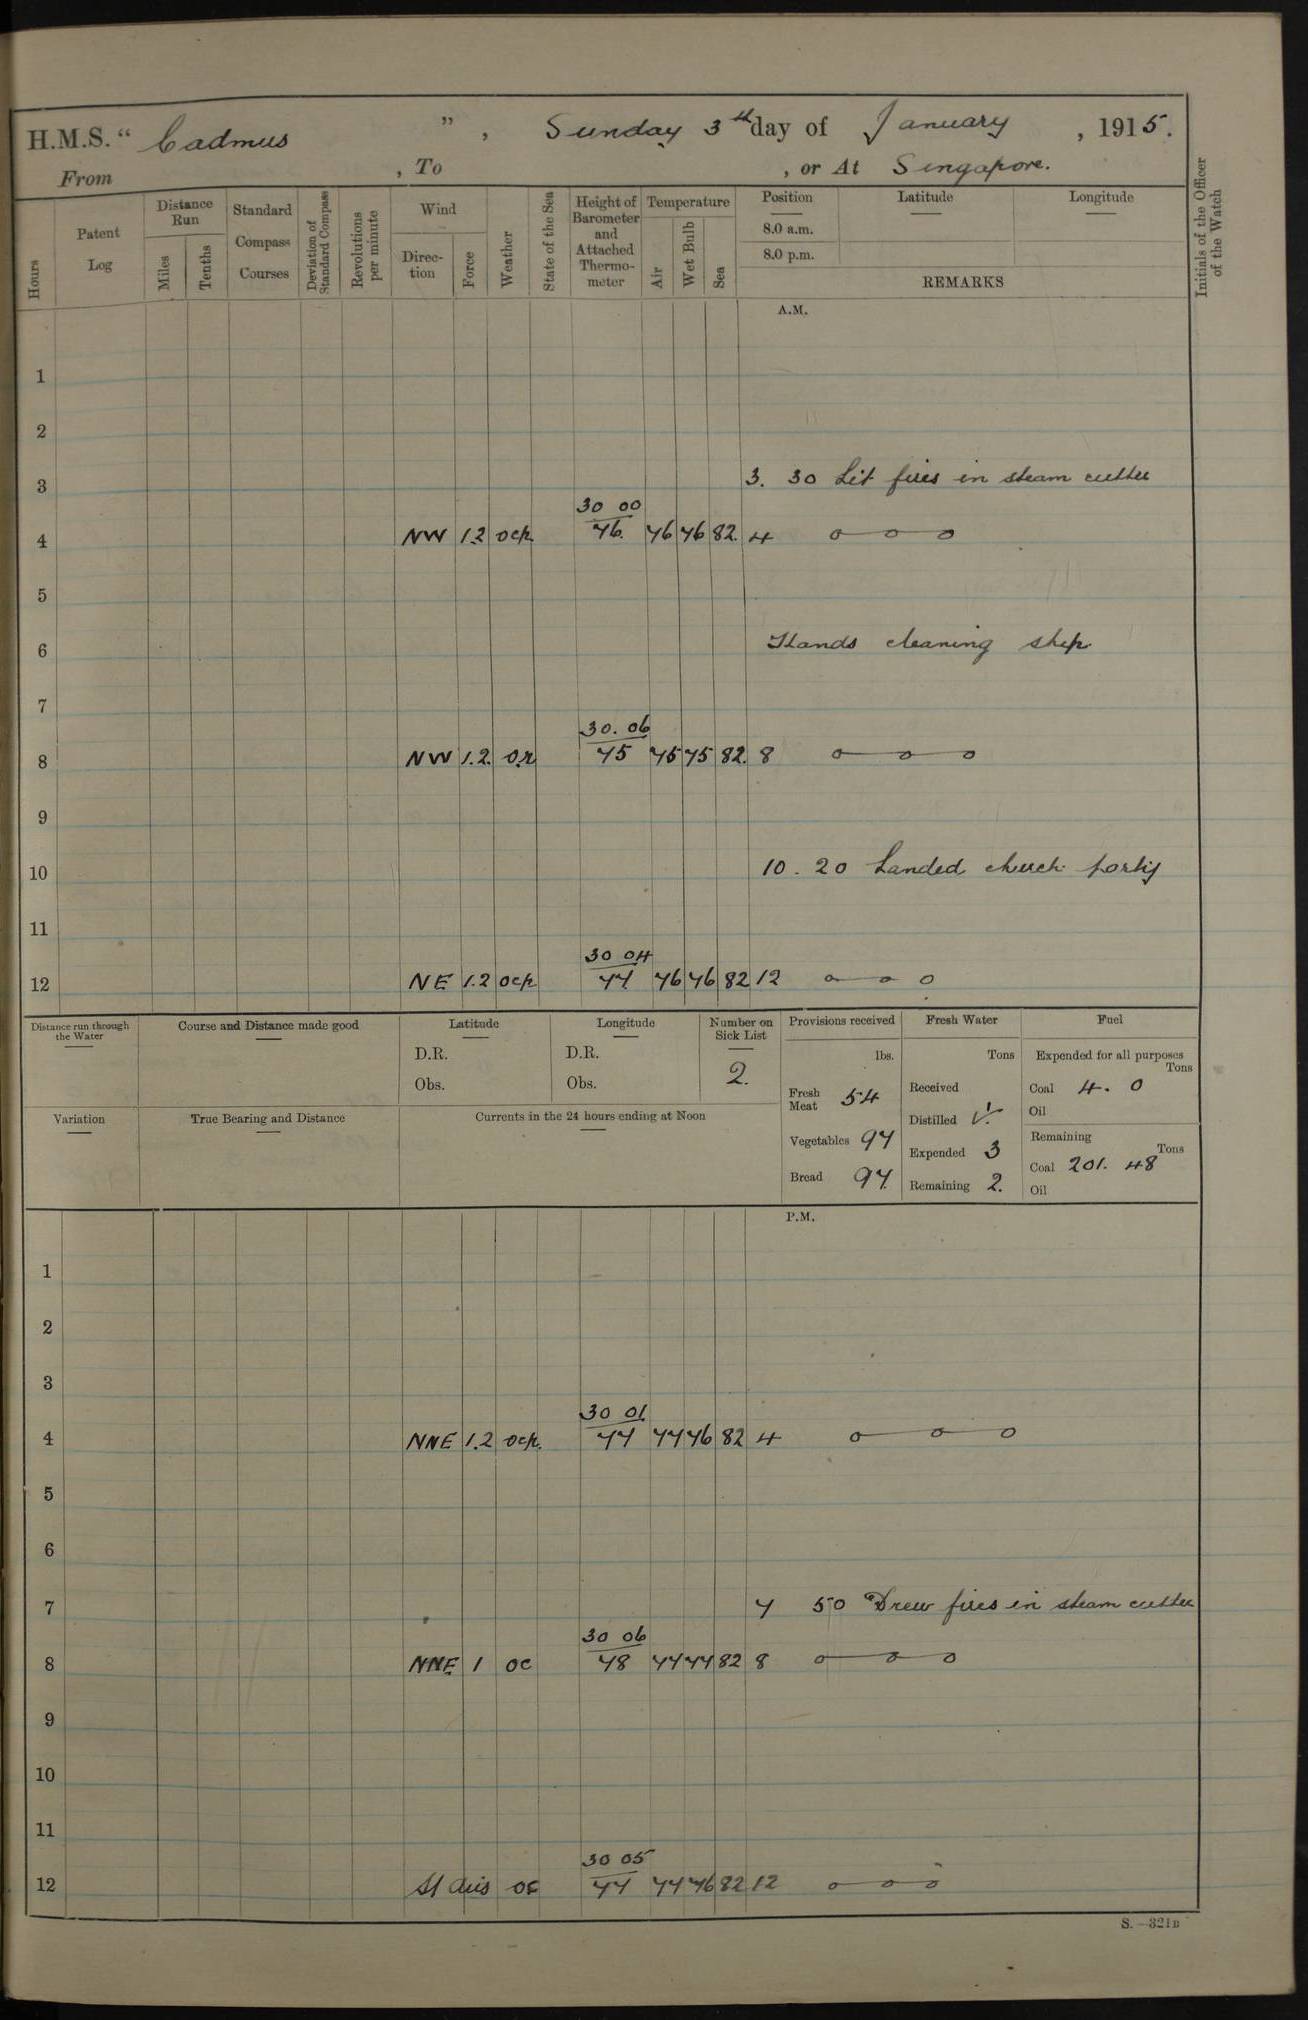 H.M.S. “ Cadmus ” , Sunday 3th day of January , 1915.
From , To , or At Singapore.
Hours
Patent Log
Distance Run
Miles
Tenths
Standard Compass Courses
Deviation of Standard Compass
Revolutions per minute
Wind
Direction
Force
Weather
State of the Sea
Height of Barometer and Attached Thermometer
Temperature
Air
Wet Bulb
Sea
Position
8.0 a.m.
8.0 p.m.
Latitude
Longitude
REMARKS
Initials of the Officer of the Watch
A.M.
1
2
3 3. 30 Lit fires in steam cutter
30 00
4 NW 1.2 ocp. 76. 76 76 82. 4 o—o—o
5
6 Hands cleaning ship
7
30. 06
8 NW 1.2. o.r 75 75 75 82. 8 o—o—o
9
10 10. 20 Landed church party
11
30 04
12 NE 1.2 ocp 77 76 76 82 12 o—o—o
Distance run through the Water
Course and Distance made good
Latitude
D.R.
Obs.
Longitude
D.R.
Obs.
Number on Sick List
2.
Variation
True Bearing and Distance
Currents in the 24 hours ending at Noon
Provisions received
lbs.
Fresh Meat 54
Vegetables 97
Bread 97.
Fresh Water
Tons
Received
Distilled
Expended 3
Remaining 2.
Fuel
Expended for all purposes
Tons
Coal 4. 0
Oil
Remaining
Tons
Coal 201. 48
Oil
P.M.
1
2
3
30 01
4 NNE 1.2 ocp. 77 77 76 82 4 o—o—o
5
6
7 7 50 Drew fires in steam cutter
30 06
8 NNE 1 oc 78 77 77 82 8 o—o—o
9
10
11
30 05
12 St airs oc 77 77 76 82 12 o—o—o
S.—321B